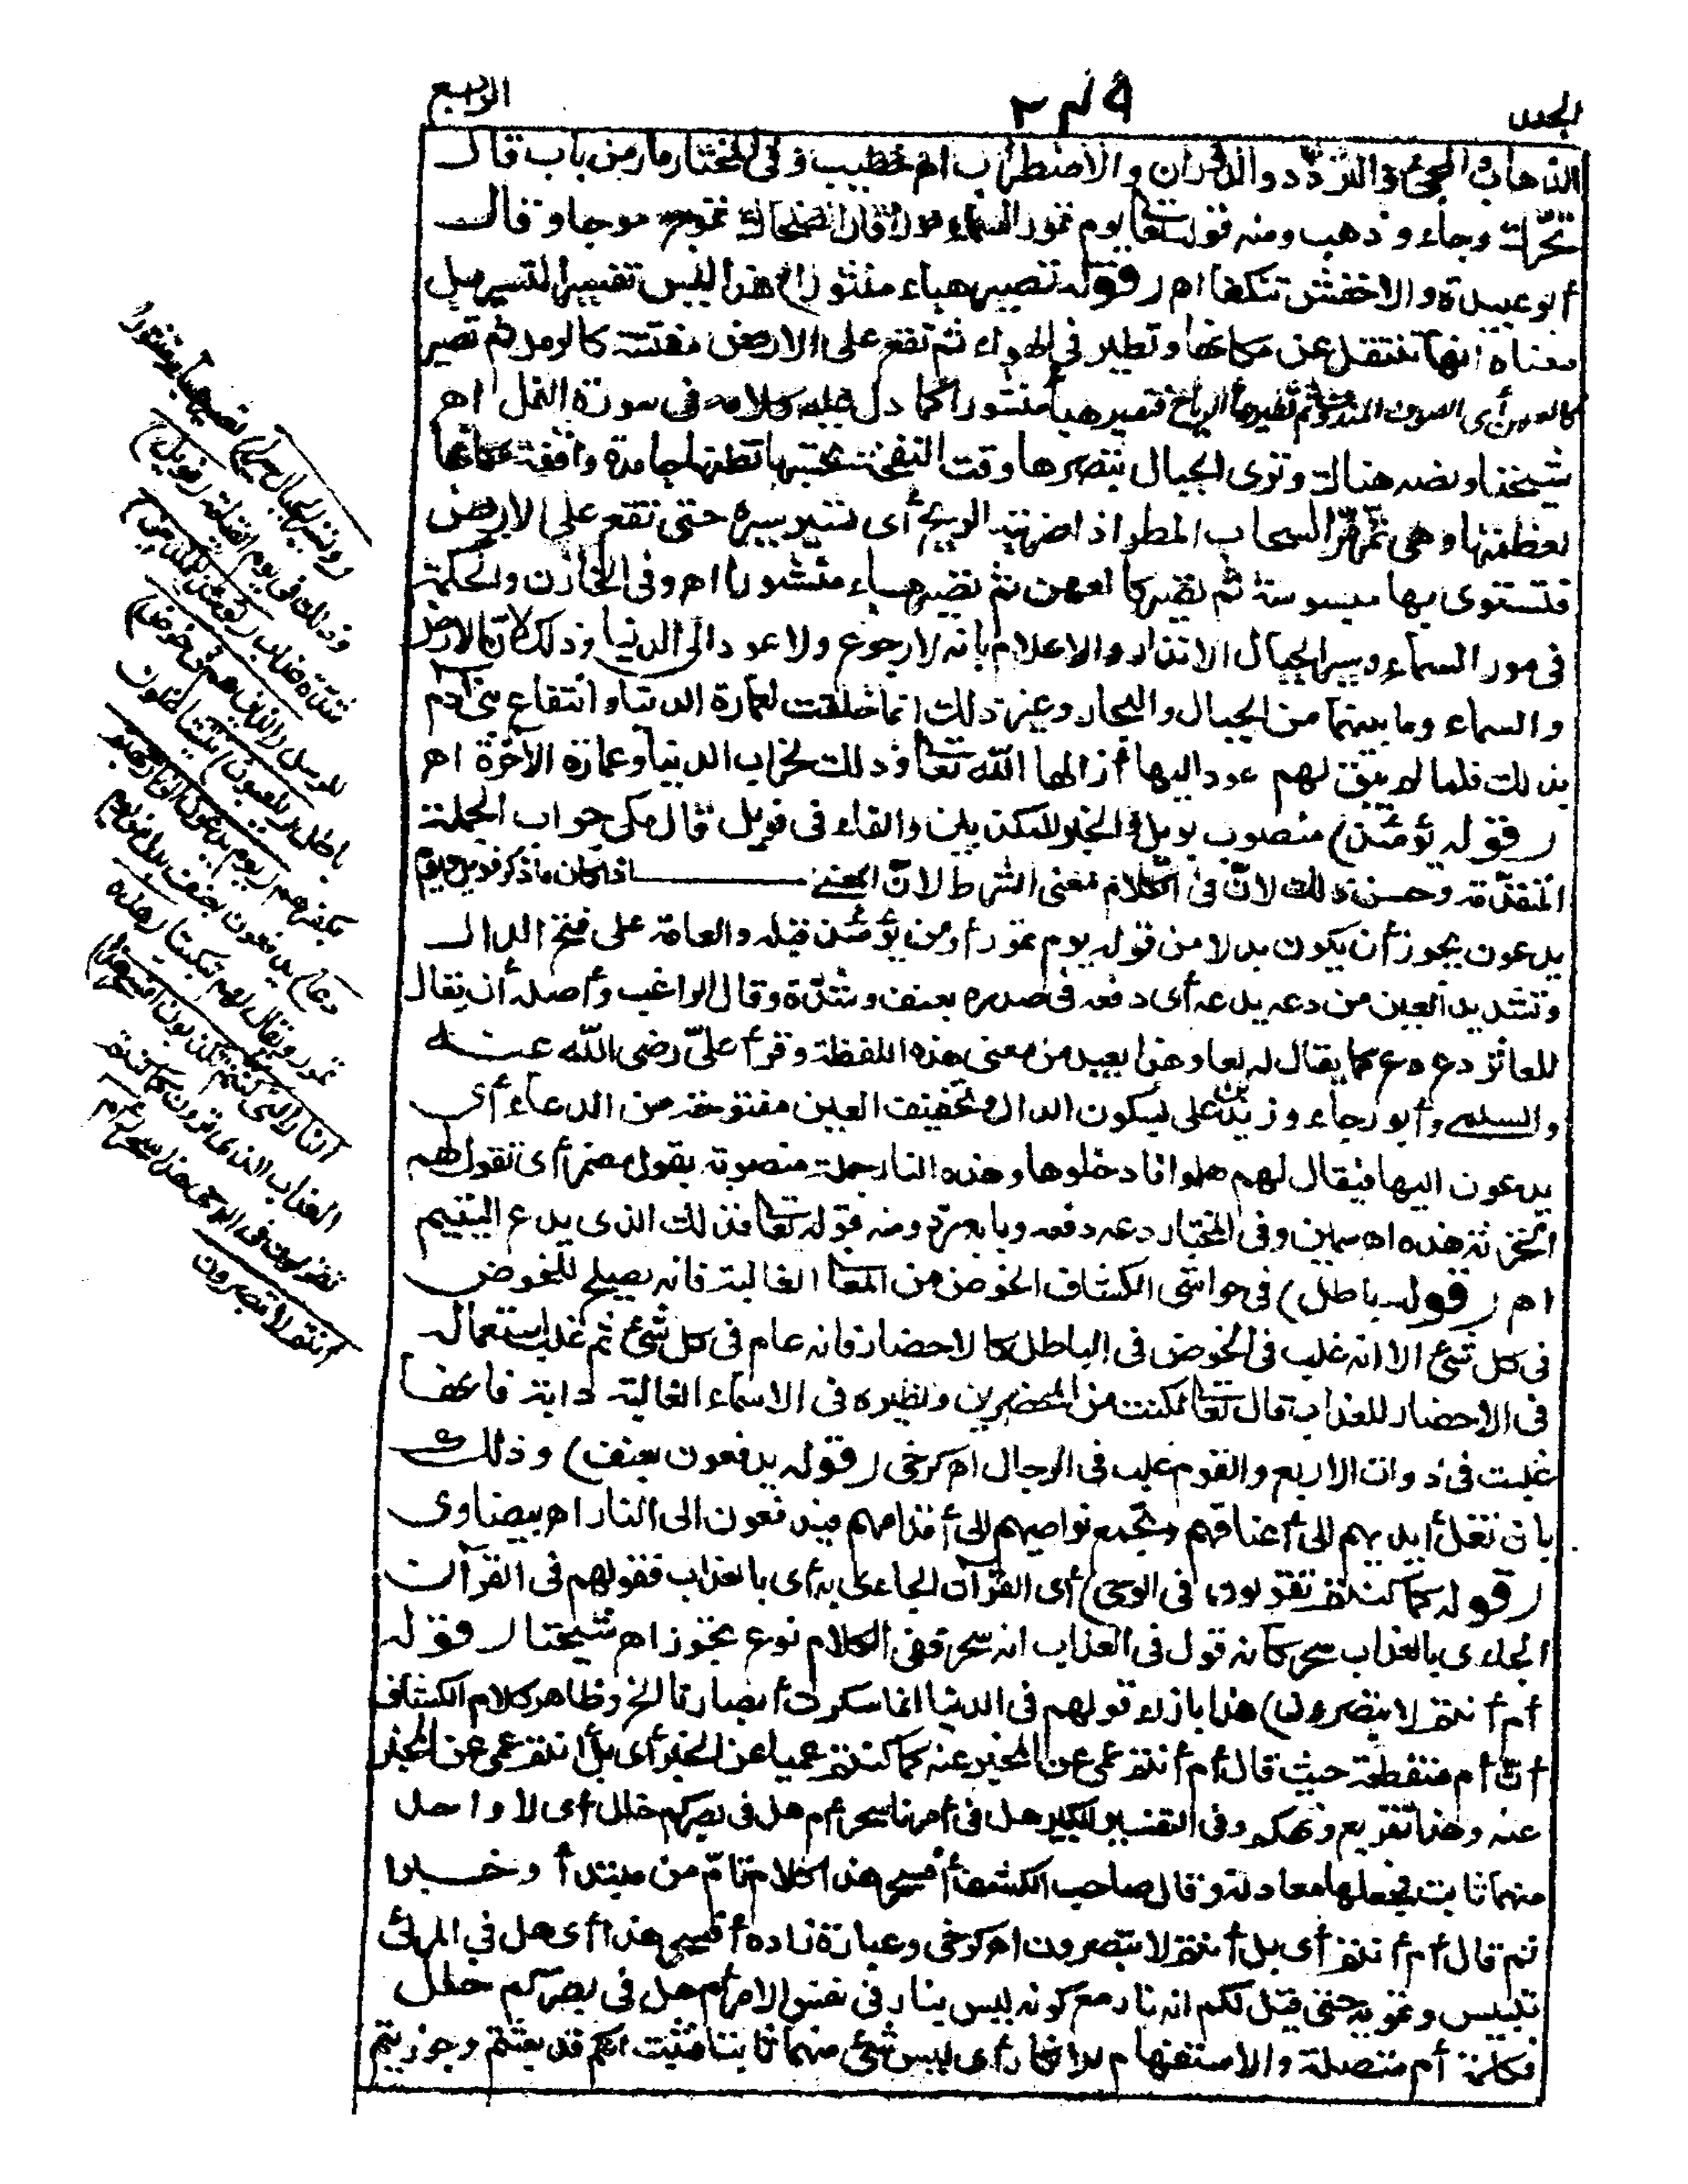 الجلد
٢٤٩
الرابع
الذهاب والمجيء والتردد والدوران والاضطراب اه خطيب وفي المختار مار من باب قال
تحرك وجاء وذهب ومنه قوله تعا يوم تمور السماء مورا قال الضحاك تموج موجا وقال
أبو عبيدة والاخفش تتكفأ اه (قوله تصير هباء منثورا) هذا ليس تفسيرا لتسير بل
معناه انها تنتقل عن مكانها وتطير في الهواء ثم تقع على الارض مفتتة كالرمل ثم تصير
كالعهن أي الصوف المندوف ثم تطيرها الرياح فتصير هباء منثورا كما دل عليه كلامه في سورة النمل اه
شيخنا ونصه هناك وترى الجبال تبصرها وقت النفخة تحسبها تظنها جامدة واقفة مكانها
لعظمتها وهي تمر مر السحاب المطر اذا ضربته الريح أي تسير سيره حتى تقع على الارض
فتستوي بها مبسوسة ثم تصير كالعهن ثم تصير هباء منثورا اه وفي الخازن والحكمة
في مور السماء وسير الجبال الانذار والاعلام بانه لا رجوع ولا عود الى الدنيا وذلك لان الارض
والسماء وما بينهما من الجبال والبحار وغير ذلك انما خلقت لعمارة الدنيا وانتفاع بني آدم
بذلك فلما لم يبق لهم عود اليها أزالها الله تعا وذلك لخراب الدنيا وعمارة الآخرة اه
(قوله يومئذ) منصوب بويل والخبر للمكذبين والفاء في فويل قال مكي جواب الجملة
المتقدمة وحسن ذلك لانّ في الكلام معنى الشرط لانّ المعنى اذا كان ما ذكر فويل
يدعون يجوز أن يكون بدلا من قوله يوم تمور أو من يومئذ قبله والعامة على فتح الدال
وتشديد العين من دعه يدعه أي دفعه في صدره بعنف وشدّة وقال الراغب وأصله أن يقال
للعاثر دع دع كما يقال له لعا وهذا بعيد من معنى هذه اللفظة وقرأ عليّ رضى الله عنه
والسلمي وأبو رجاء وزيد بن علي بسكون الدال وتخفيف العين مفتوحة من الدعاء أي
يدعون اليها فيقال لهم هلموا فادخلوها وهذه النار جملة منصوبة بقول مضمر أي تقول لهم
الخزنة هذه اه سمين وفي المختار دعه دفعه وبابه رد ومنه قوله تعا فذلك الذي يدع اليتيم
اه (قوله باطل) في حواشي الكشاف الخوض من المعا الغالبة فانه يصلح للخوض
في كل شئ الا انه غلب في الخوض في الباطل كالاحضار فانه عام في كل شئ ثم غلب استعماله
في الاحضار للعذاب قال تعا لكنت من المحضرين ونظيره في الاسماء الغالبة دابة فانها
غلبت في ذوات الاربع والقوم غلب في الرجال اه كرخي (قوله يدفعون بعنف) وذلك
بان تغل أيديهم الى أعناقهم وتجمع نواصيهم الى أقدامهم فيدفعون الى النار اه بيضاوي
(قوله كما كنتم تقولون في الوحي) أي القرآن الجاءي به أي بالعذاب فقولهم في القرآن
الجاءي بالعذاب سحر كأنه قول في العذاب انه سحر ففي الكلام نوع تجوز اه شيخنا (قوله
أم أنتم لا تبصرون) هذا بازاء قولهم في الدنيا انما سكرت أبصارنا الخ وظاهر كلام الكشاف
أنّ أم منقطعة حيث قال أم أنتم عمي عن المخبر عنه كما كنتم عميا عن الخبر أي بل أنتم عمي عن المخبر
عنه وهذا تقريع وتهكم وفي التفسير الكبير هل في أمرنا سحر أم هل في بصركم خلل أي لا واحد
منهما ثابت فجعلها معادلة وقال صاحب الكشف أفسحر هذا كلام تام من مبتدأ وخبر
ثم قال أم أنتم أي بل أنتم لا تبصرون اه كرخي وعبارة زاده أفسحر هذا أي هل في المرئي
تلبيس وتمويه حتى قيل لكم انه نار مع كونه ليس بنار في نفس الامر أم هل في بصركم خلل
فكلمة أم متصلة والاستفهام للانكار أي ليس شئ منهما ثابتا فثبت انكم قد بعثتم وجوزيتم
(وتسير الجبال سيرا) تصير هباء منثورا
وذلك في يوم القيامة (فويل)
شدّة عذاب (يومئذ للمكذبين)
للرسل (الذين هم في خوض)
باطل (يلعبون) يتشاغلون
بكفرهم (يوم يدعون الى نار جهنم
دعا) يدفعون بعنف بدل من يوم
تمور ويقال لهم تبكيتا (هذه
النار التي كنتم بها تكذبون أفسحر هذا)
العذاب الذي ترون كما كنتم
تقولون في الوحي هذا سحر (أم
أنتم لا تبصرون